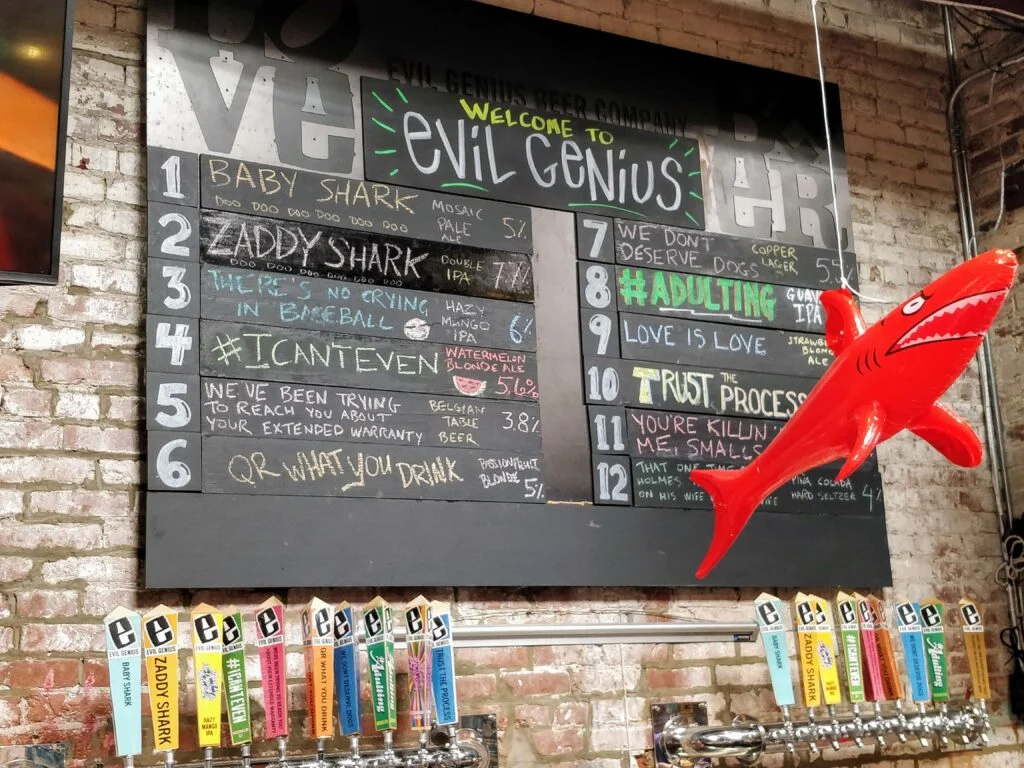 LOVE
EVIL GENIUS BEER COMPANY
WELCOME TO
EVIL GENIUS
BEER
1 BABY SHARK
DOO DOO DOO DOO DOO DOO
MOSAIC
PALE
ALE
5%
2 ZADDY SHARK
DOO DOO DOO DOO DOO DOO
DOUBLE
IPA
7.7%
3 THERE'S NO CRYING
IN BASEBALL
HAZY
MANGO
IPA
6%
4 #ICANTEVEN
WATERMELON
BLONDE ALE
5.6%
5 WE'VE BEEN TRYING
TO REACH YOU ABOUT
YOUR EXTENDED WARRANTY
BELGIAN
TABLE
BEER
3.8%
6 OR WHAT YOU DRINK
PASSIONFRUIT
BLONDE
5%
7 WE DONT
DESERVE DOGS
COPPER
LAGER
8 #ADULTING
GUAVA
IPA
9 LOVE IS LOVE
BLONDE
ALE
10 TRUST THE PROCESS
11 YOU'RE KILLIN'
ME, SMALLS
12 THAT ONE TIME
HOLMES
ON HIS WIFE
PIÑA COLADA
HARD SELTZER
4%
e
EVIL GENIUS
BABY SHARK
e
EVIL GENIUS
ZADDY SHARK
e
EVIL GENIUS
HAZY
MANGO IPA
e
#ICANTEVEN
e
EVIL GENIUS
e
OR WHAT YOU DRINK
e
WE DONT DESERVE DOGS
e
Adulting
e
e
EVIL GENIUS
TRUST THE PROCESS
e
EVIL GENIUS
BABY SHARK
e
ZADDY SHARK
e
e
#ICANTEVEN
e
e
e
EVIL GENIUS
e
EVIL GENIUS
Adulting
e
EVIL GENIUS